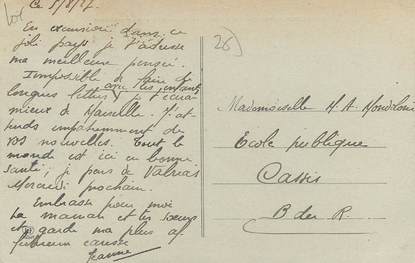 Lot
Ce 5/8/27.
En excursion dans ce
joli pays je t'adresse
ma meilleure pensée.
Impossible de faire de
longues lettres avec les enfants je t'écrirai
mieux de Marseille. J'at-
tends impatiemment de
vos nouvelles. Tout le
monde est ici en bonne
santé, je pars de Valréas
Mercredi prochain.
Embrasse pour moi
ta maman et tes sœurs
et garde ma plus af
fectueuse caresse
Jeanne
26
Mademoiselle M. A.
Ecole publique
Cassis
B du R.